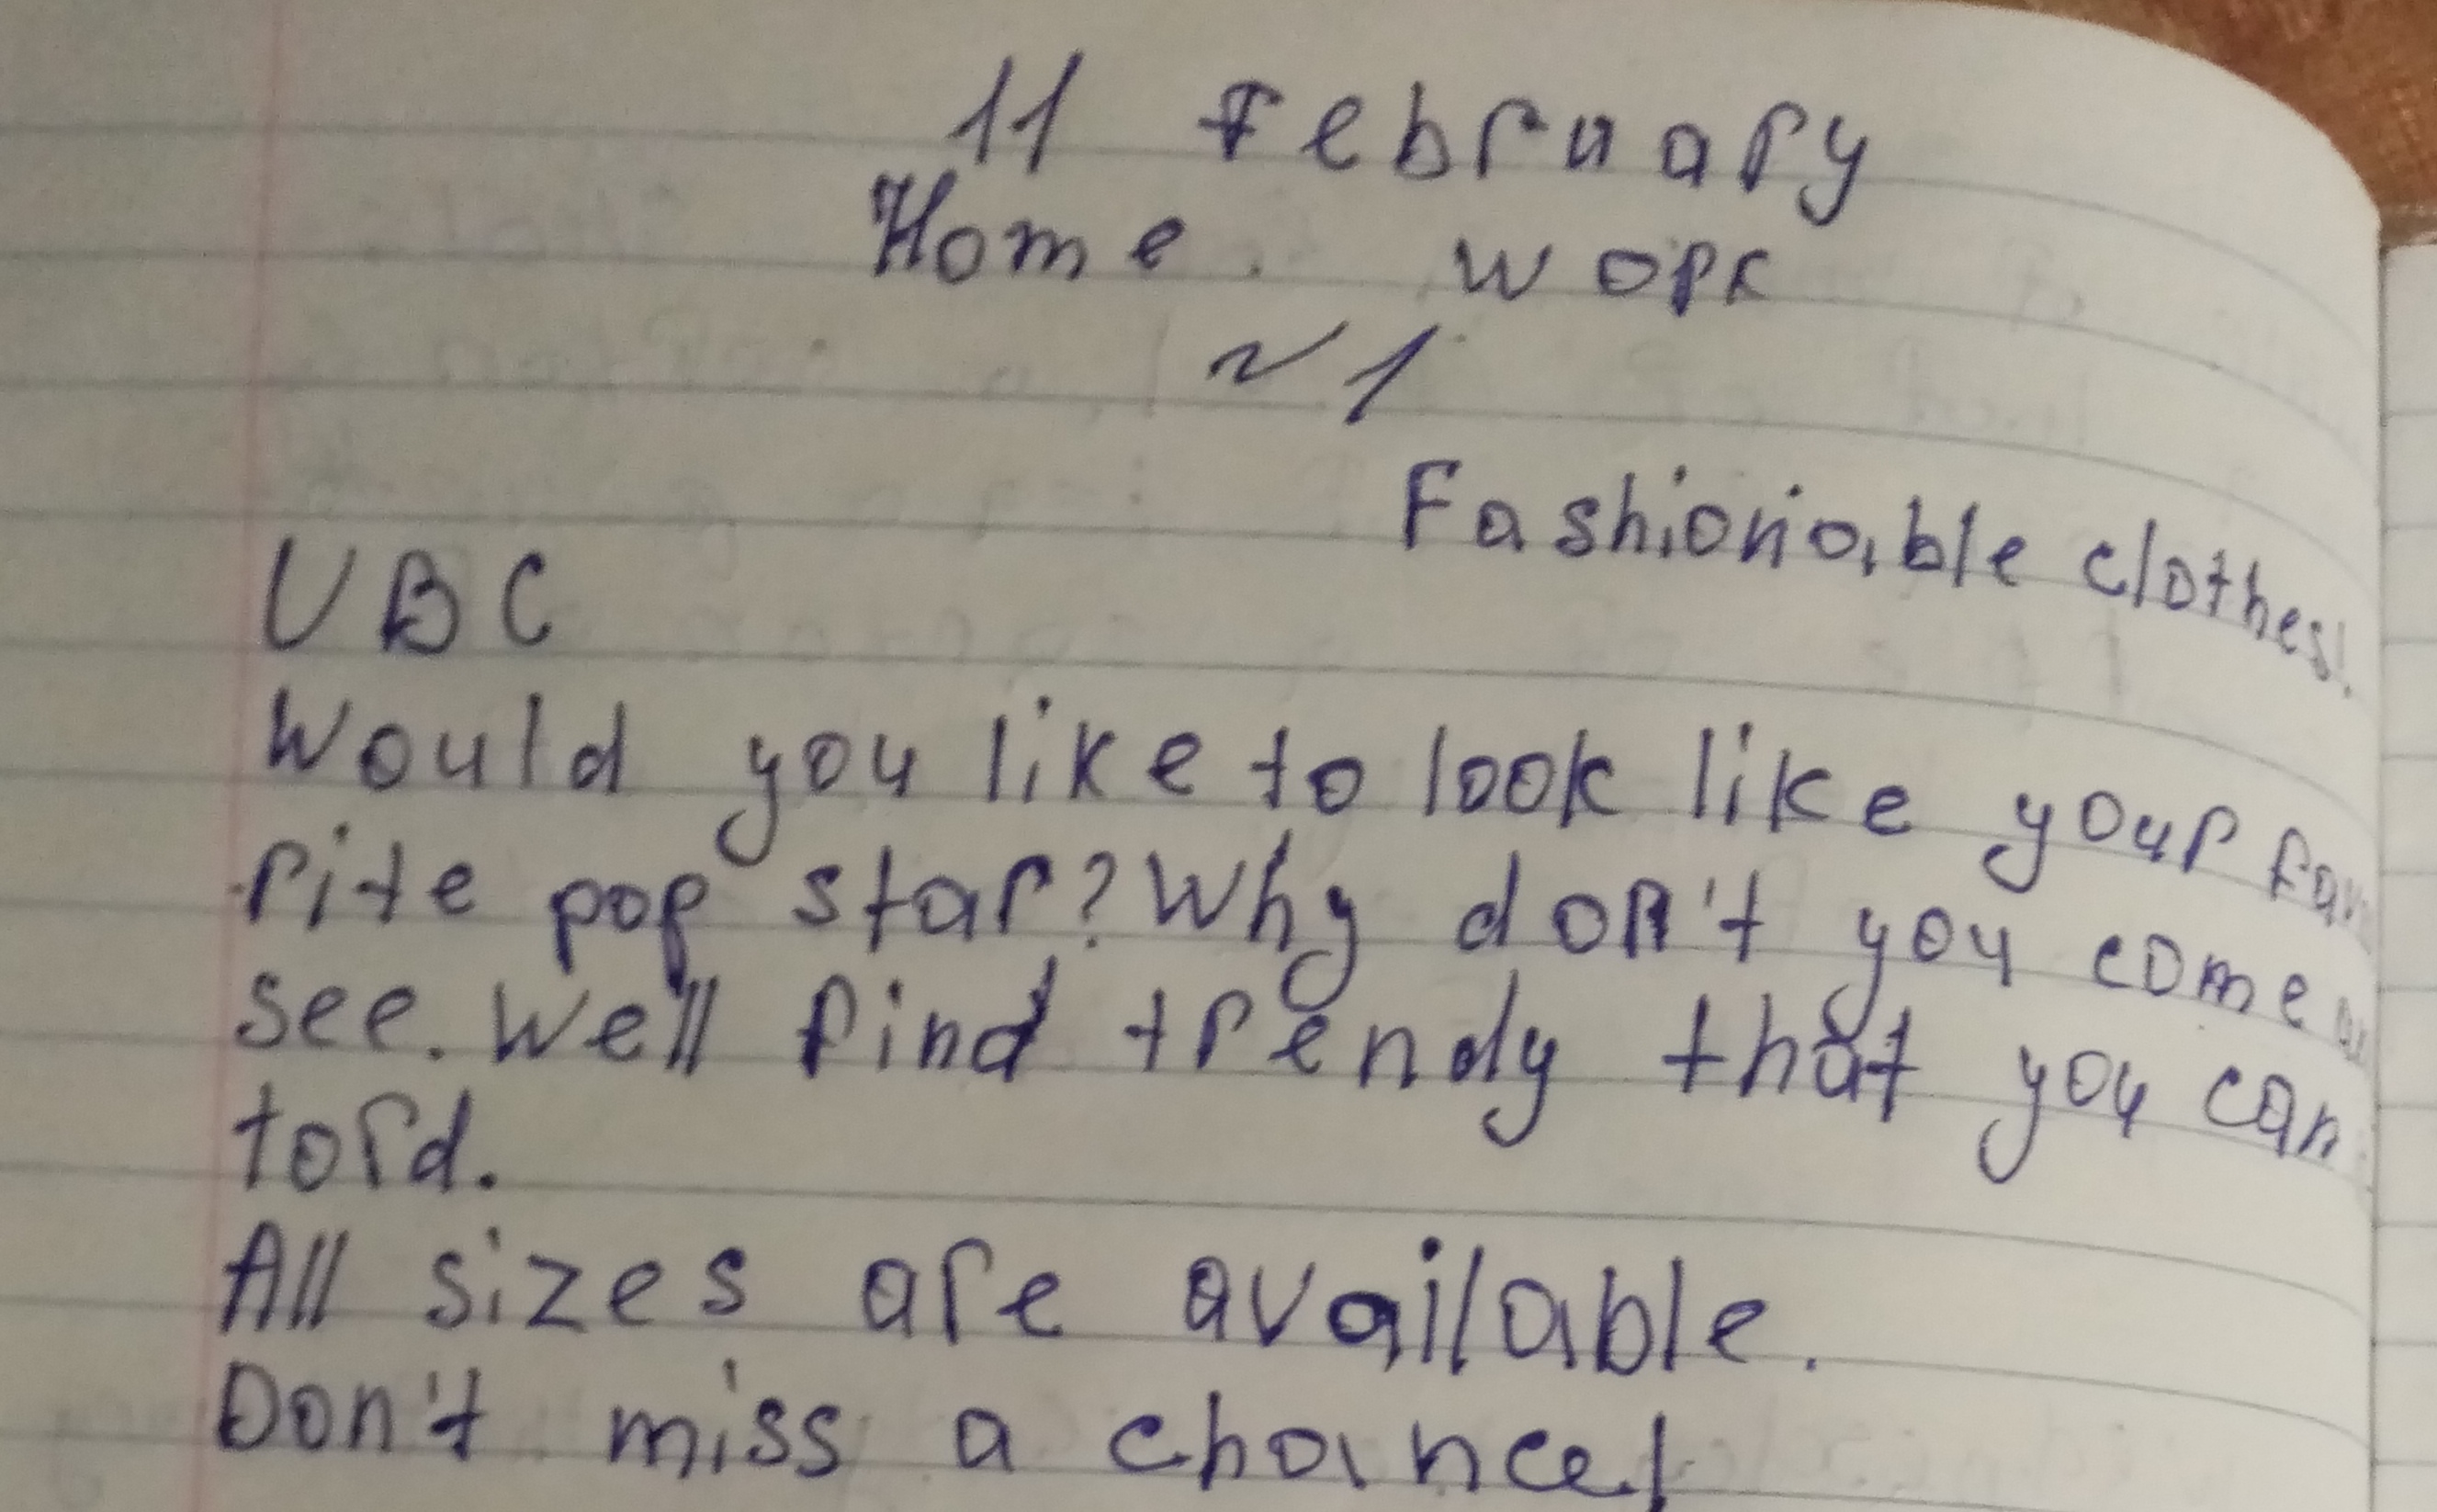 11 February
Home work
№1
Fashionable clothes!
UBC
Would you like to look like your favo
rite pop star? Why don't you come
see. We'll find trendy that you can
tord.
All sizes are available.
Don't miss a chance!